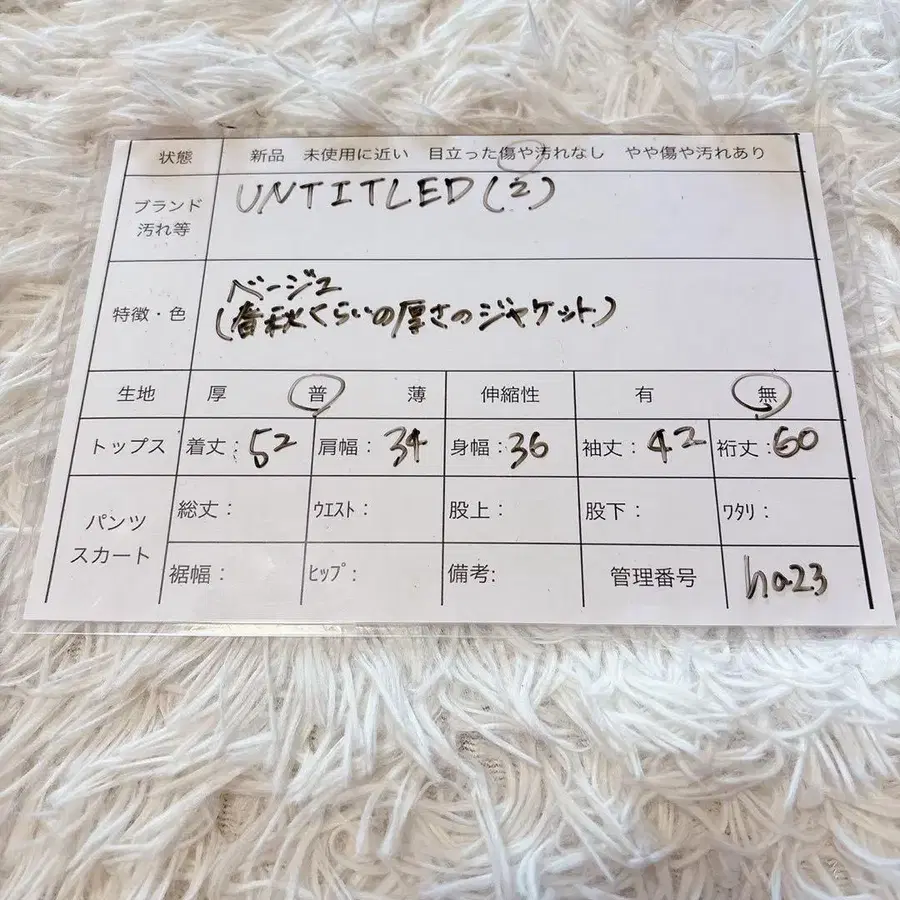 状態 新品 未使用に近い 目立った傷や汚れなし やや傷や汚れあり
ブランド
汚れ等
UNTITLED(2)
特徴・色
ベージュ
(春秋くらいの厚さのジャケット)
生地 厚 普 薄 伸縮性 有 無
トップス 着丈:52 肩幅:34 身幅:36 袖丈:42 裄丈:60
パンツ
スカート
総丈: ウエスト: 股上: 股下: ワタリ:
裾幅: ヒップ: 備考: 管理番号 ha23